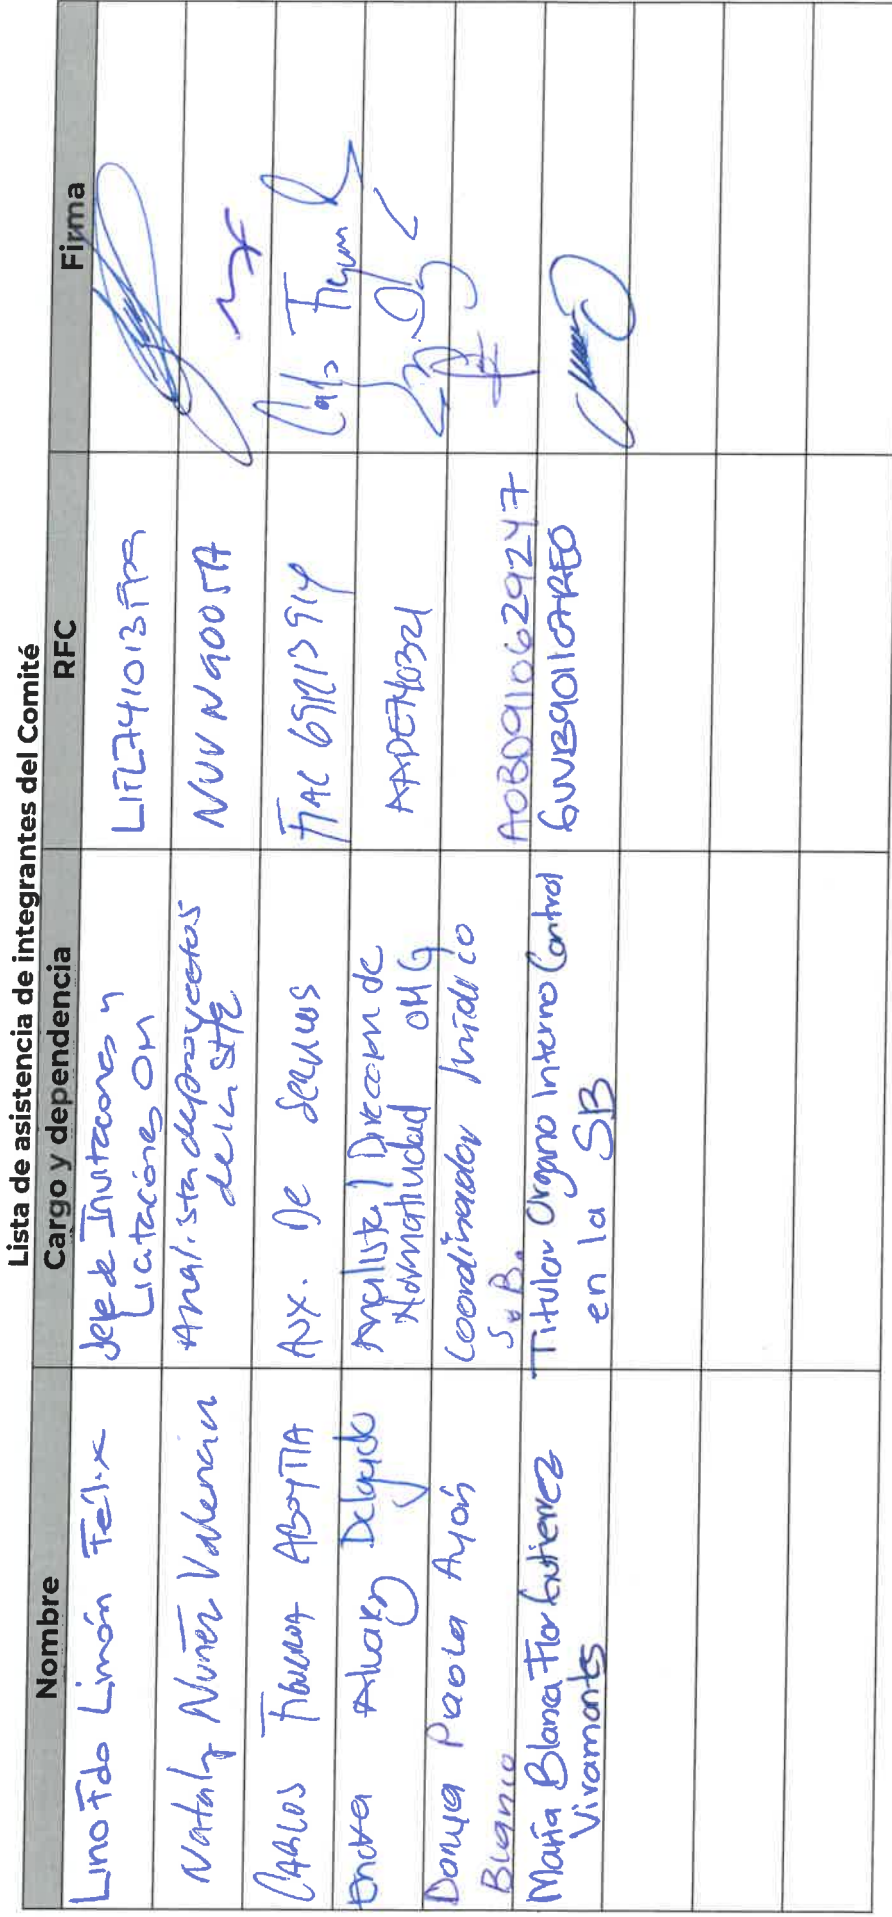 Lista de asistencia de integrantes del Comité
Nombre Cargo y dependencia RFC Firma
Lino Fdo Limón Felix Jefe de Invitaciones y
Licitaciones OM LIFL741013FPA
Nataly Nuñez Valencia Analista de proyectos
de la SHP NUVN9005TA
CARLOS FIGUEROA ABOYTIA AUX. De Servicios FIAC 691213914 Carlos Figueroa
Endra Alvarez Delgado Analista / Direccion de
Normatividad OMG AADE740321
Danya Paola Ayón
Blanco Coordinador Jurídico
S.B. AOBD9106292Y7
María Blanca Flor Gutierrez
Viramontes Titular Organo Interno Control
en la SB GUVB9011